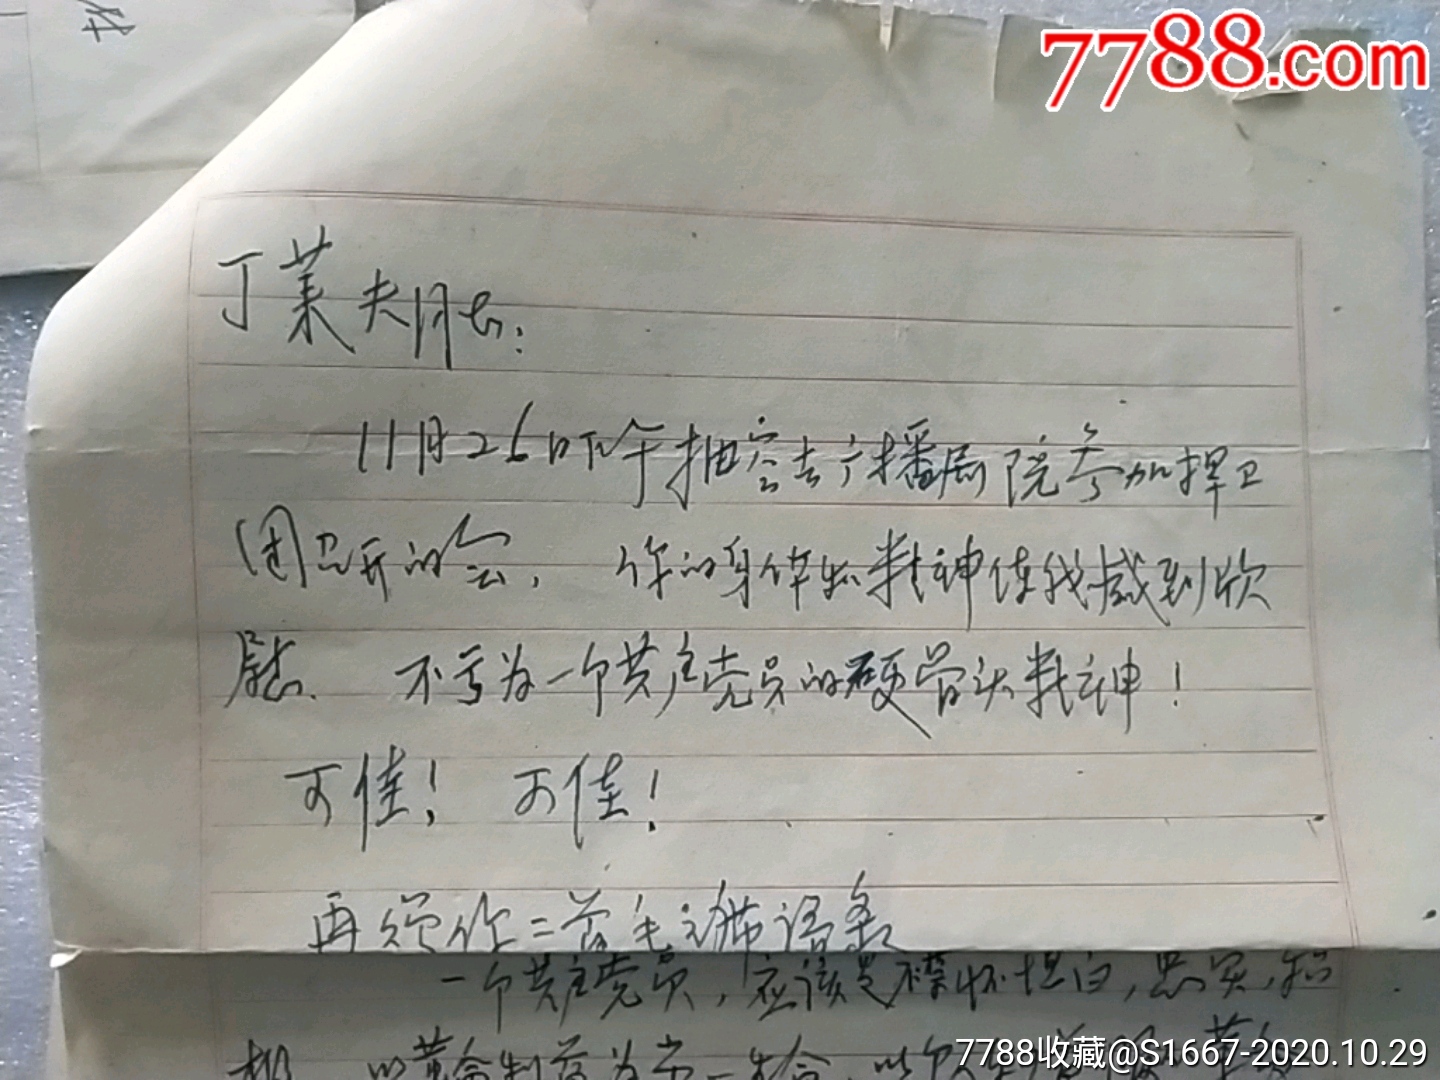 7788.com
丁莱夫同志:
11月26日下午抽空去广播剧院参加捍卫
团召开的会, 你的身体和精神使我感到欣
慰. 不亏为一个共产党员的硬骨头精神!
可佳! 可佳!
再 你二 毛主席语录
一个共产党员,应该是襟怀坦白,忠实,积
极 以革命利益为第一生命,以
7788收藏@S1667-2020.10.29